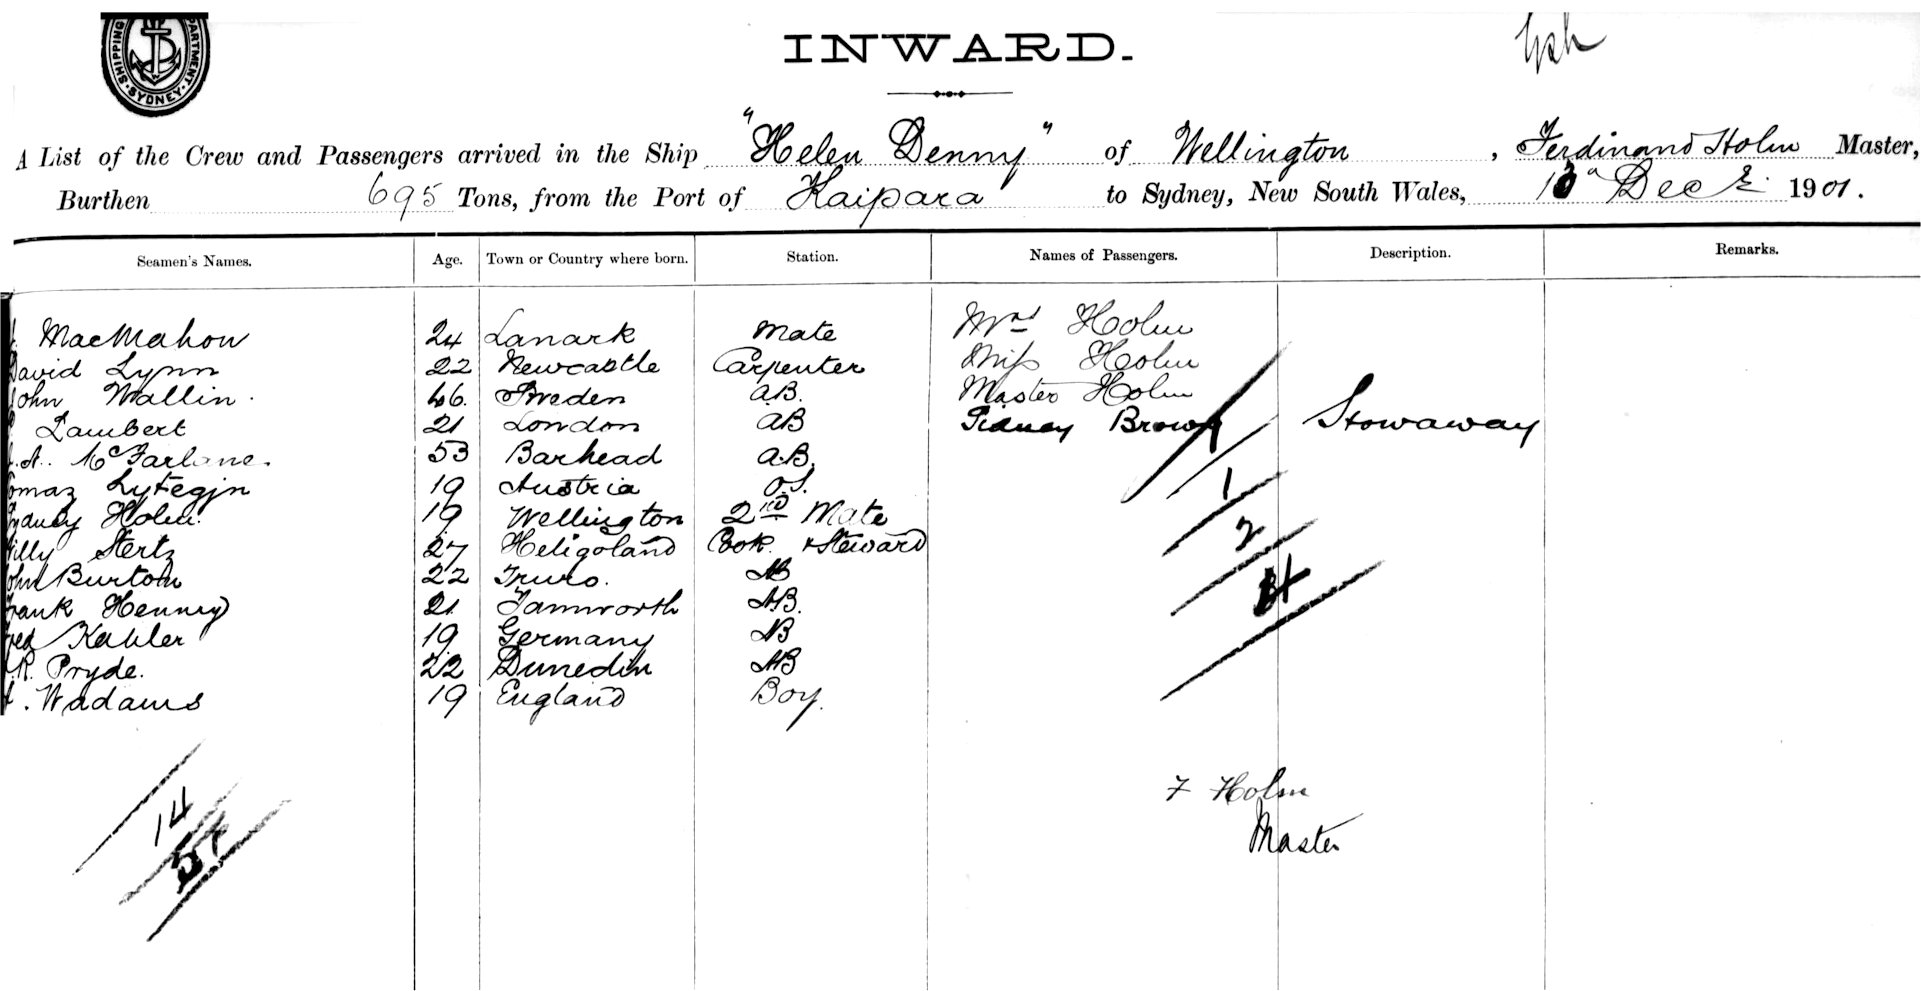 SHIPPING DEPARTMENT. SYDNEY
INWARD.
A List of the Crew and Passengers arrived in the Ship "Helen Denny" of Wellington, Ferdinand Holm Master,
Burthen 695 Tons, from the Port of Kaipara to Sydney, New South Wales, Dec 1901.
Seamen's Names. Age. Town or Country where born. Station. Names of Passengers. Description. Remarks.
MacMahon 24 Lanark Mate Mrs Holm
David Lynn 22 Newcastle Carpenter Miss Holm
John Wallin. 46. Sweden A.B. Master Holm
Lambert 21 London AB Sidney Brown Stowaway
A. McFarlane. 53 Barhead A.B.
Tomaz 19 Austria O.S. 1
Sydney Holm. 19 Wellington 2nd Mate 2
Willy Stertz 27 Heligoland Cook & Steward
John Burton 22 Truro. AB
Frank Henney 21 Tamworth AB.
Fred Kahler 19 Germany AB
R. Pryde. 22 Dunedin AB
Wadams 19 England Boy.
F Holm
Master
14